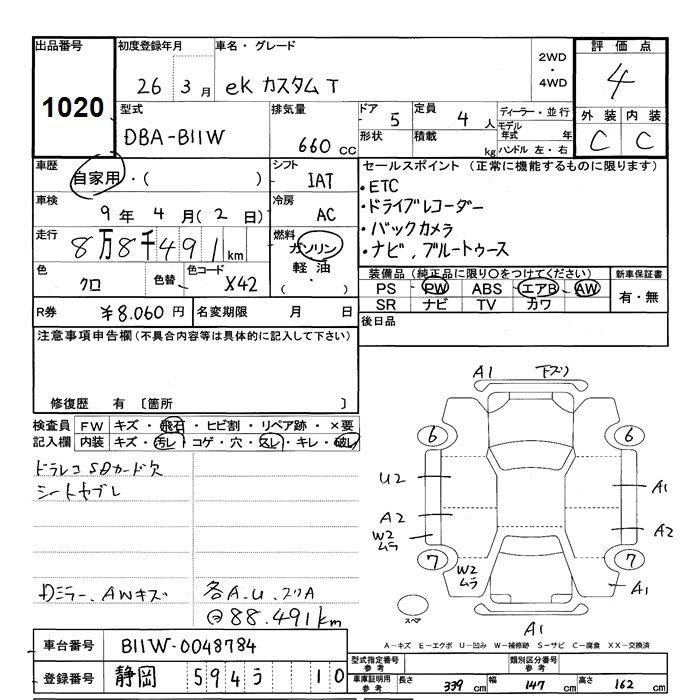 出品番号
1020
初度登録年月
26 3 月
車名・グレード
eK カスタム T
2WD
・
4WD
評価点
4
外装 内装
C C
型式
DBA-B11W
排気量
660 cc
ドア 5
形状
定員 4 人
積載 kg
ディーラー・並行
モデル年式 年
ハンドル 左・右
車歴
自家用・( )
シフト
IAT
車検
9 年 4 月( 2 日)
冷房
AC
走行
8万8千491km
燃料
ガソリン
軽油
色
クロ
色替
色コード
X42
セールスポイント (正常に機能するものに限ります)
・ETC
・ドライブレコーダー
・バックカメラ
・ナビ、ブルートゥース
装備品 (純正品に限り〇をつけてください)
PS PW ABS エアB AW
SR ナビ TV カワ
新車保証書
有・無
R券 ¥8.060 円
名変期限 月 日
後日品
注意事項申告欄(不具合内容等は具体的に記入して下さい)
修復歴 有 〔箇所 〕
検査員記入欄
FW キズ・飛石・ヒビ割・リペア跡・×要
内装 キズ・汚レ・コゲ・穴・スレ・キレ・破レ
ドラレコSDカード欠
シートヤブレ
Dミラー、AWキズ
各A.U.スリA
@88.491km
A1 下ズリ
6 6
U2
A1
A2
A2
W2
ムラ
7 W2 7
ムラ
A1
スペア
A1
A−キズ E−エクボ U−凹み W−補修跡 S−サビ C−腐食 XX−交換済
車台番号 B11W-0048784
登録番号 静岡 594 う 10
型式指定番号
参考
類別区分番号
参考
車庫証明用
参考
長さ 339 cm 幅 147 cm 高さ 162 cm